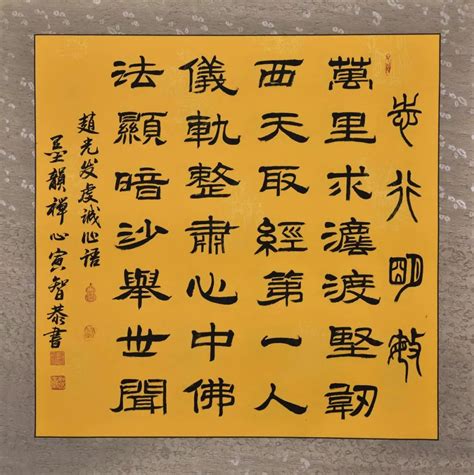 志行明敏
萬里求灋渡堅韌
西天取經第一人
儀軌整肅心中佛
法顯暗沙舉世聞
趙先发虔诚心语
墨韻禅心寅智恭書